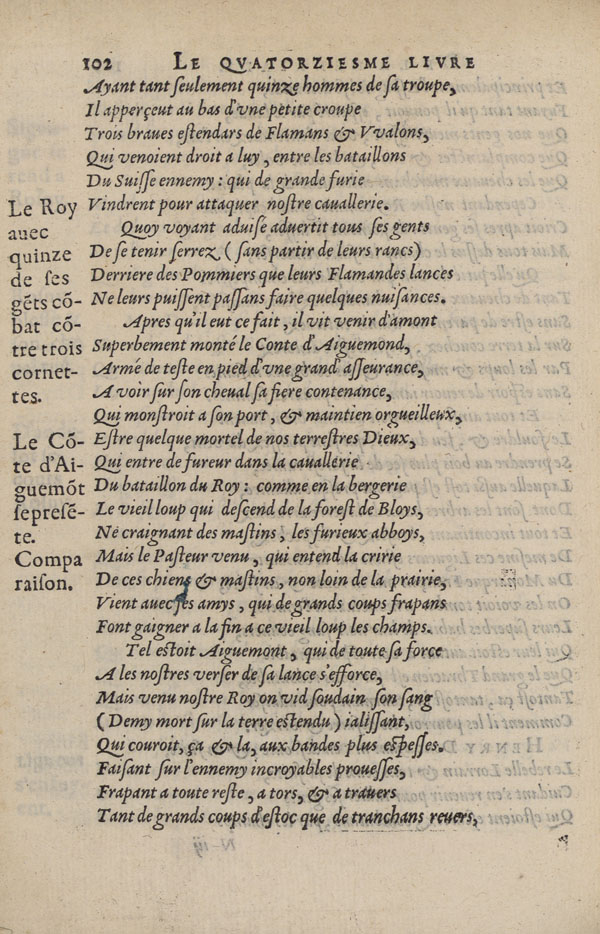 102 LE QVATORZIESME LIVRE
Ayant tant ſeulement quinze hommes de ſa troupe,
Il apperçeut au bas d'vne petite croupe
Trois braues eſtendars de Flamans & Vvalons,
Qui venoient droit a luy, entre les bataillons
Du Suiſſe ennemy : qui de grande furie
Vindrent pour attaquer noſtre cauallerie.
Quoy voyant aduiſe aduertit tous ſes gents
De ſe tenir ſerrez ( ſans partir de leurs rancs)
Derriere des Pommiers que leurs Flamandes lances
Ne leurs puiſſent paſſans faire quelques nuiſances.
Apres qu'il eut ce fait, il vit venir d'amont
Superbement monté le Conte d'Aiguemond,
Armé de teſte en pied d'vne grand' aſſeurance,
A voir ſur ſon cheual ſa fiere contenance,
Qui monſtroit a ſon port, & maintien orgueilleux,
Eſtre quelque mortel de nos terreſtres Dieux,
Qui entre de fureur dans la cauallerie
Du bataillon du Roy : comme en la bergerie
Le vieil loup qui deſcend de la foreſt de Bloys,
Ne craignant des maſtins, les furieux abboys,
Mais le Paſteur venu, qui entend la cririe
De ces chiens & maſtins, non loin de la prairie,
Vient auec ſes amys, qui de grands coups frapans
Font gaigner a la fin a ce vieil loup les champs.
Tel eſtoit Aiguemont, qui de toute ſa force
A les noſtres verſer de ſa lance s'efforce,
Mais venu noſtre Roy on vid ſoudain ſon sang
( Demy mort ſur la terre eſtendu ) ialiſſant,
Qui couroit, ça & la, aux bandes plus eſpeſſes.
Faiſant ſur l'ennemy incroyables proueſſes,
Frapant a toute reſte, a tors, & a trauers
Tant de grands coups d'eſtoc que de tranchans reuers,
Le Roy
auec
quinze
de ſes
gẽts cõ-
bat cõ-
tre trois
cornet-
tes.
Le Cõ-
te d'Ai-
guemõt
ſepreſẽ-
te.
Compa
raiſon.